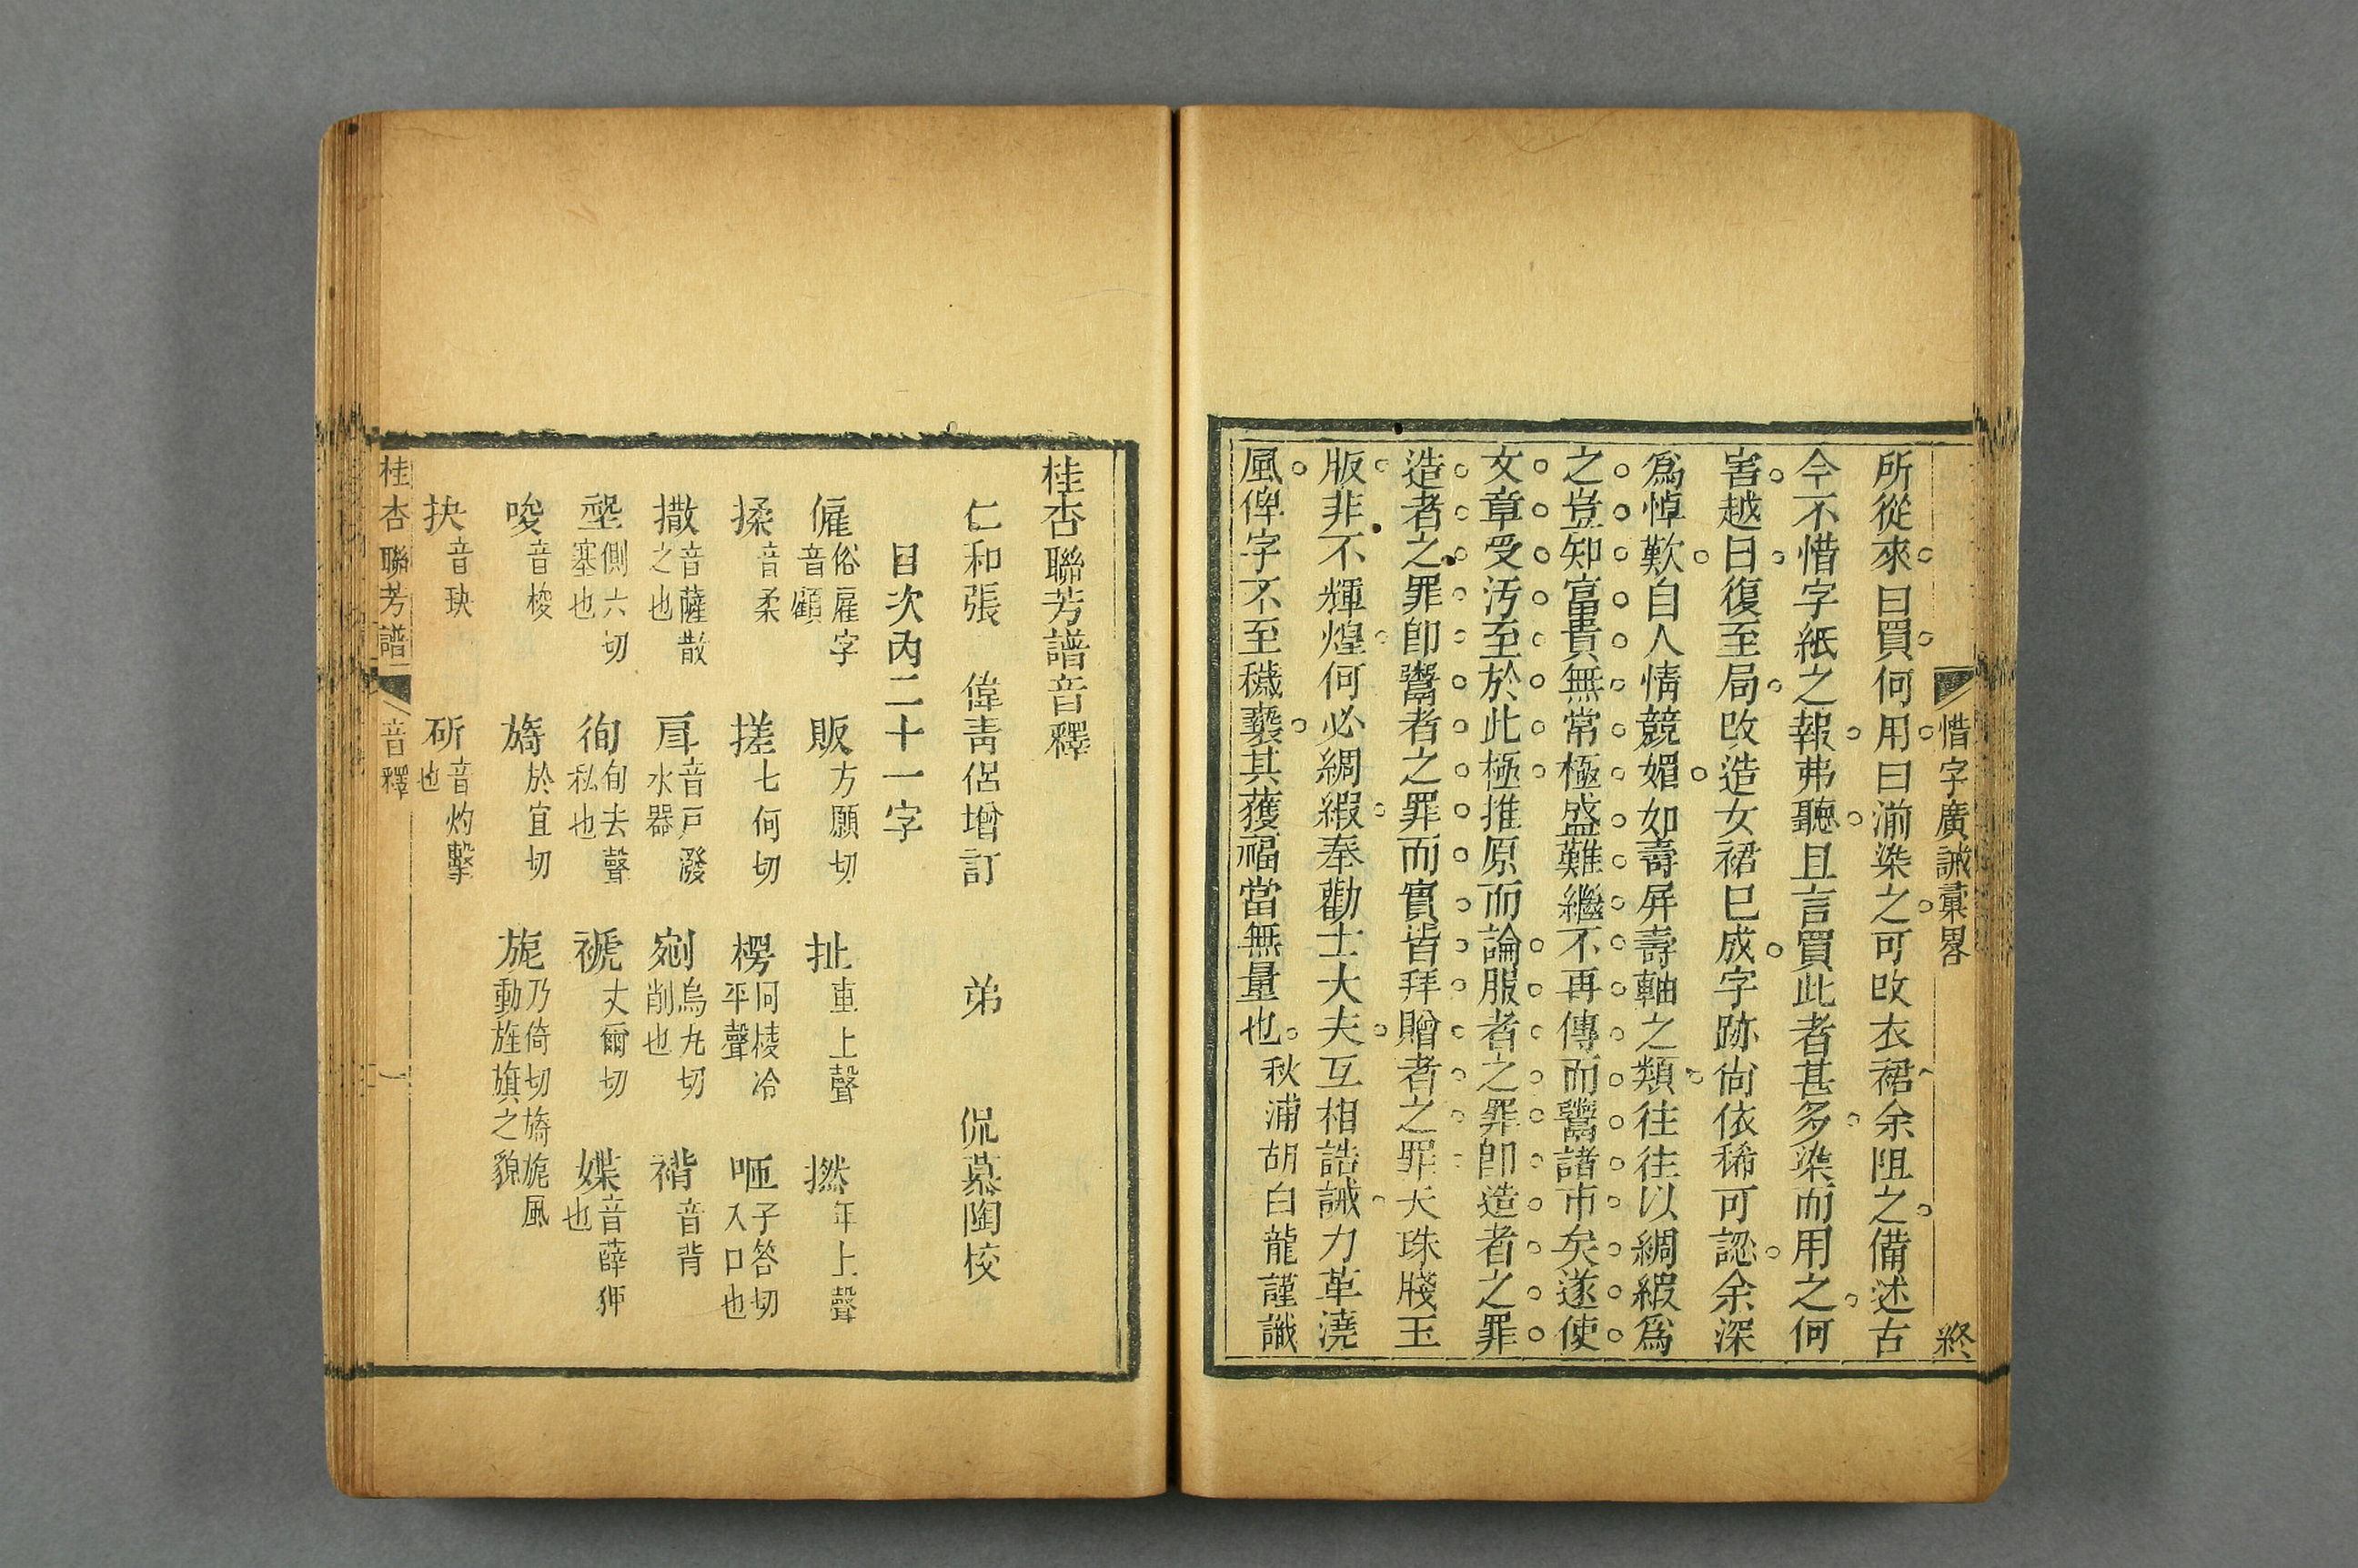 惜字廣誡彙畧
終
所從來曰買何用曰湔染之可改衣裙余阻之備述古
今不惜字紙之報弗聽且言買此者甚多染而用之何
害越日復至局改造女裙已成字跡尙依稀可認余深
爲悼歎自人情競媚如壽屏壽軸之類往往以綢緞爲
之豈知富貴無常極盛難繼不再傳而鬻諸市矣遂使
文章受汚至於此極推原而論服者之罪卽造者之罪
造者之罪卽鬻者之罪而實皆拜贈者之罪夭珠牋玉
版非不輝煌何必綢緞奉勸士大夫互相誥誡力革澆
風俾字不至穢褻其獲福當無量也 秋浦胡白龍謹識
桂杏聯芳譜音釋
仁和張 偉靑侶增訂 弟 侃慕陶校
目次內二十一字
僱俗雇字音顧 販方願切 扯車上聲 撚年上聲
揉音柔 搓七何切 楞同棱冷平聲 咂子答切入口也
撒音薩散之也 戽音戸潑水器 剜烏丸切削也 褙音背
堲側六切塞也 徇旬去聲私也 褫丈爾切 媟音薛狎也
唆音梭 旖於宜切 旎乃倚切旖旎風動旌旗之貌
抉音玦 斫音灼擊也
桂杏聯芳譜 音釋 一